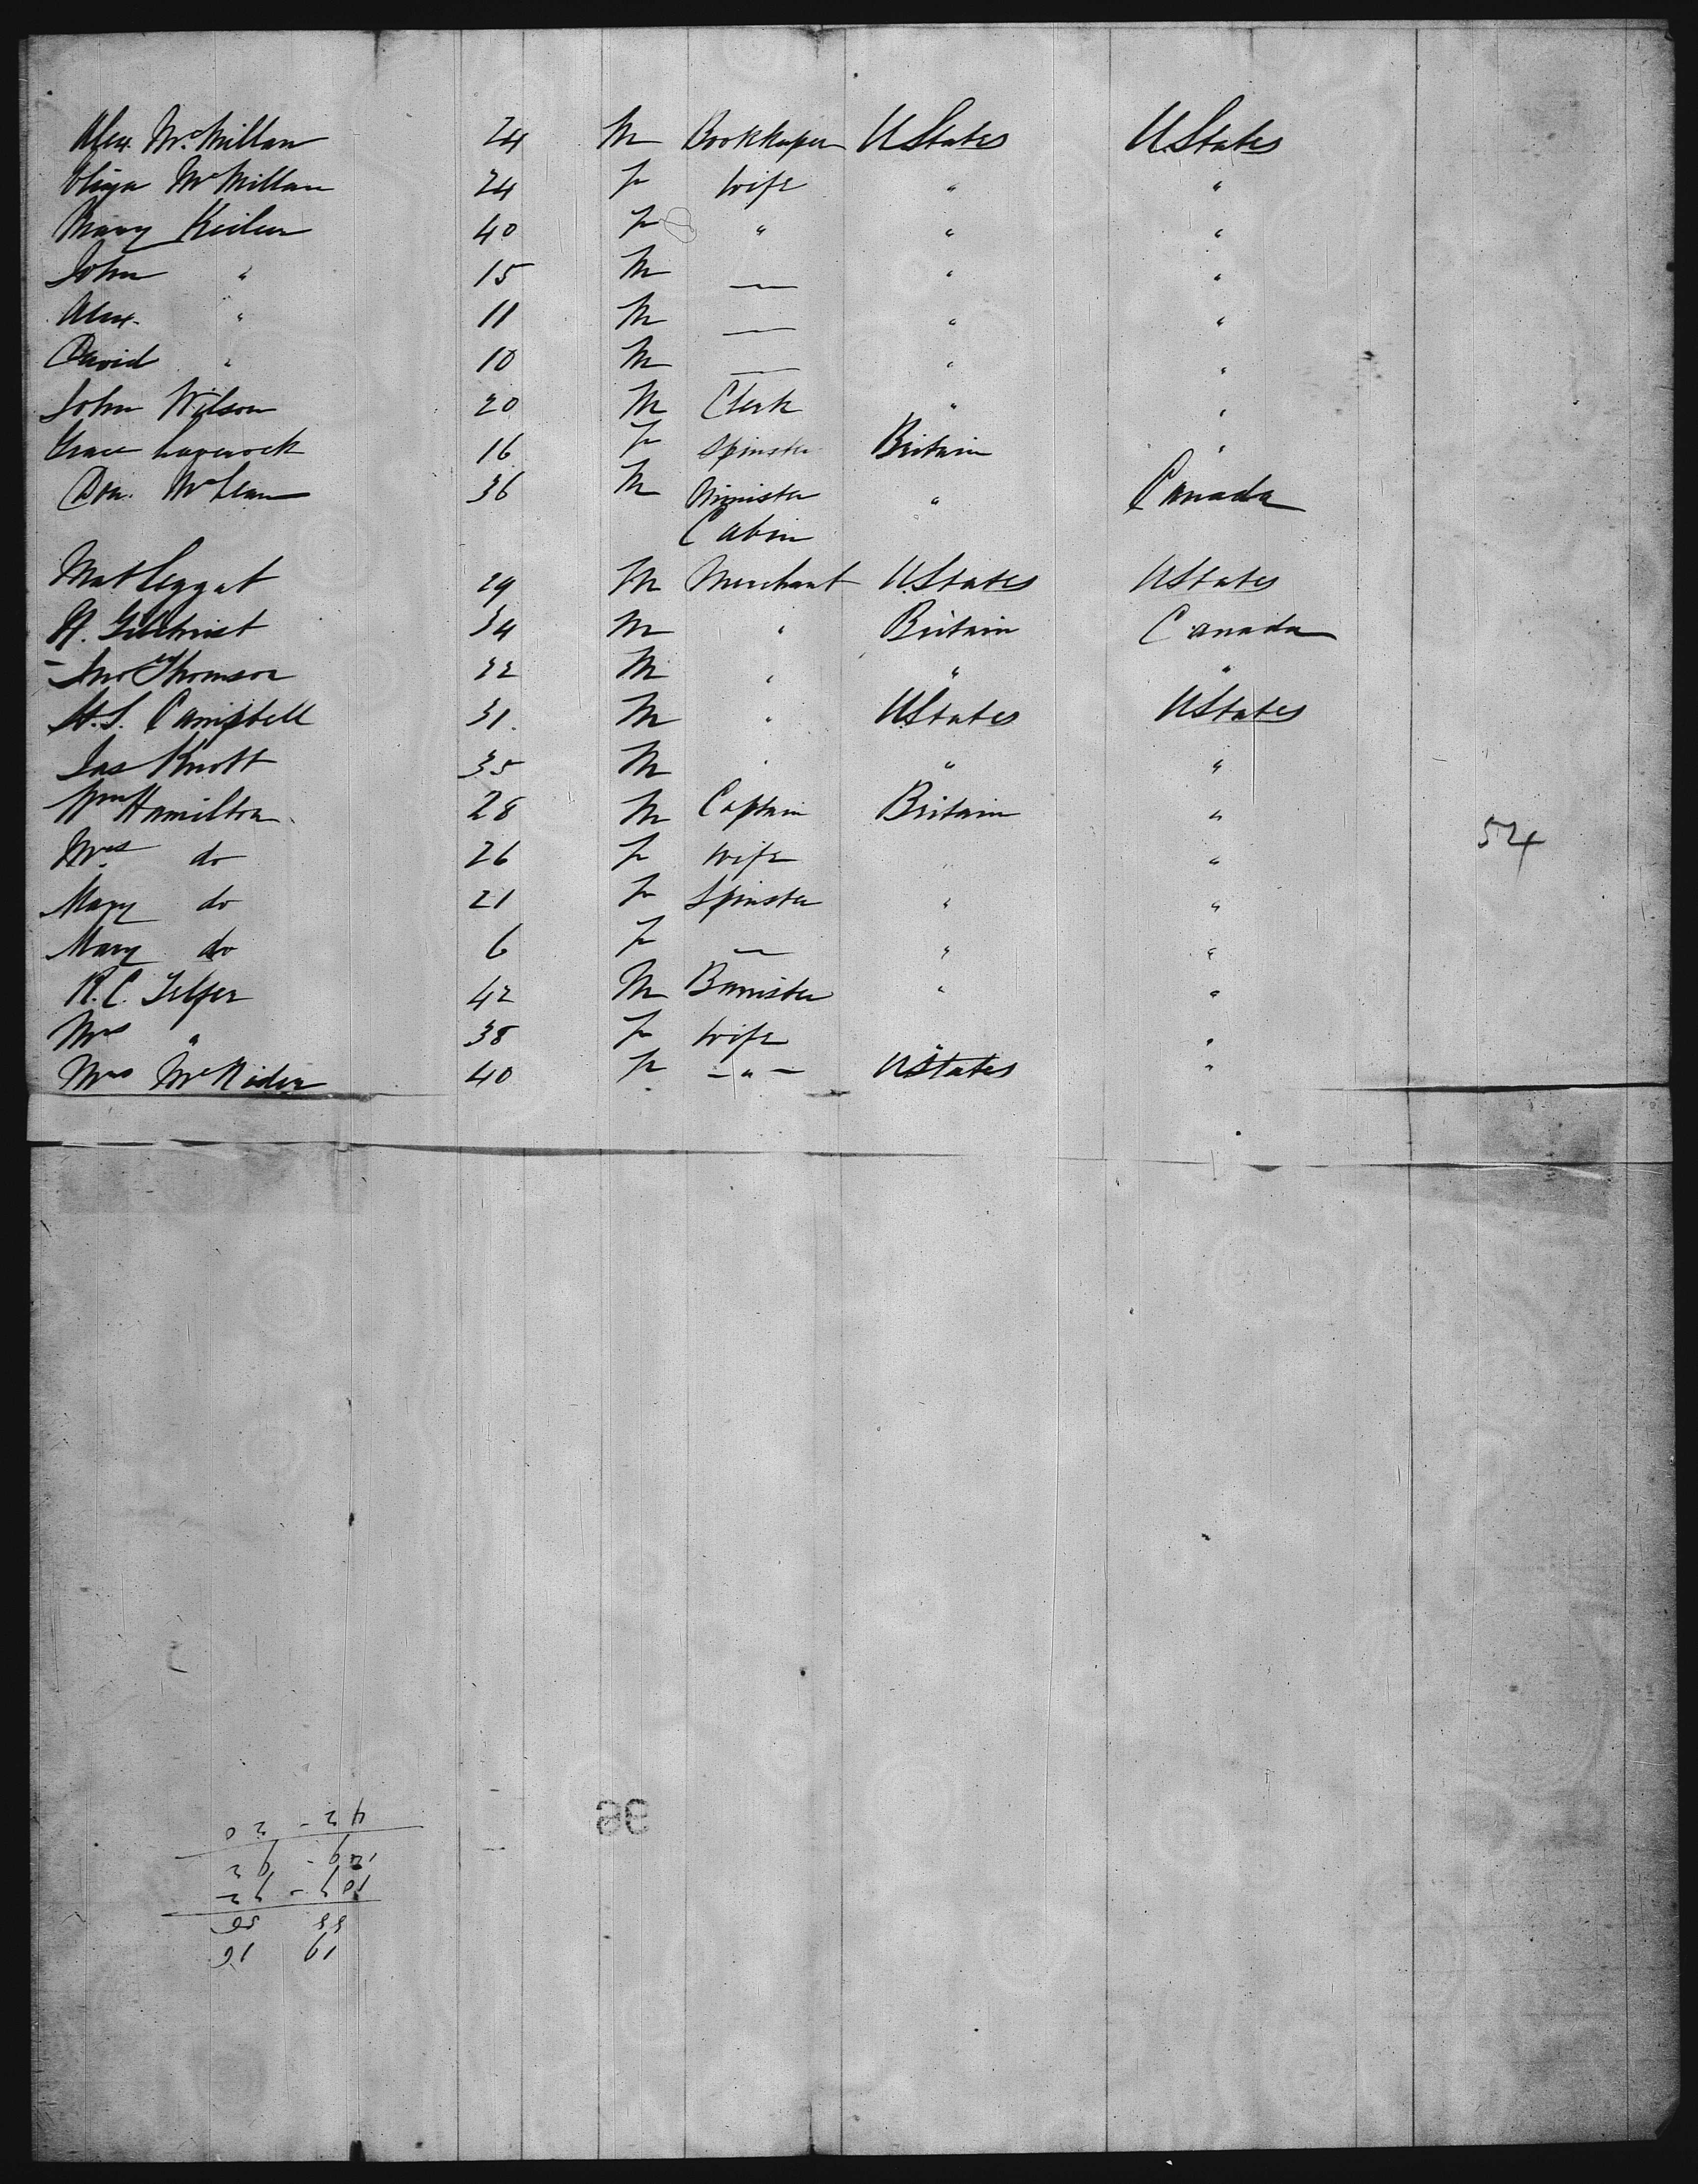 Alex. McMillan 24 M Bookkeeper UStates UStates
Eliza McMillan 24 F Wife " "
Mary Keiler 40 F " " "
John " 15 M — " "
Alex. " 11 M — " "
David " 10 M — " "
John Wilson 20 M Clerk " "
Grace Laverock 16 F Spinster Britain "
Don. McLean 36 M Minister " Canada
Cabin
Mat Leggat 29 M Merchant UStates UStates
H. Gilchrist 34 M " Britain Canada
Jno Thomson 22 M " " "
H.S. Campbell 31. M " UStates UStates
Jas Knott 35 M " " "
Wm Hamilton 28 M Captain Britain "
Mrs do 26 F Wife " "
Mary do 21 F Spinster " "
Mary do 6 F — " "
R.C. Telfer 42 M Barrister " "
Mrs " 38 F Wife " "
Mrs 40 F — " — UStates "
54
19 16